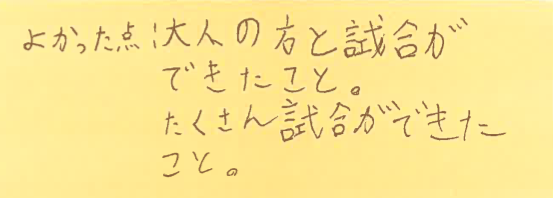 よかった点:大人の方と試合が
できたこと。
たくさん試合ができた
こと。